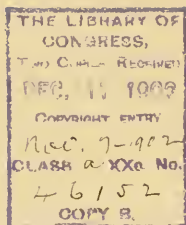 THE LIBRARY OF
CONGRESS,
Two Copies Received
DEC, 11 1903
COPYRIGHT ENTRY
Nov. 7-1902
CLASS a XXc. No.
46152
COPY B.